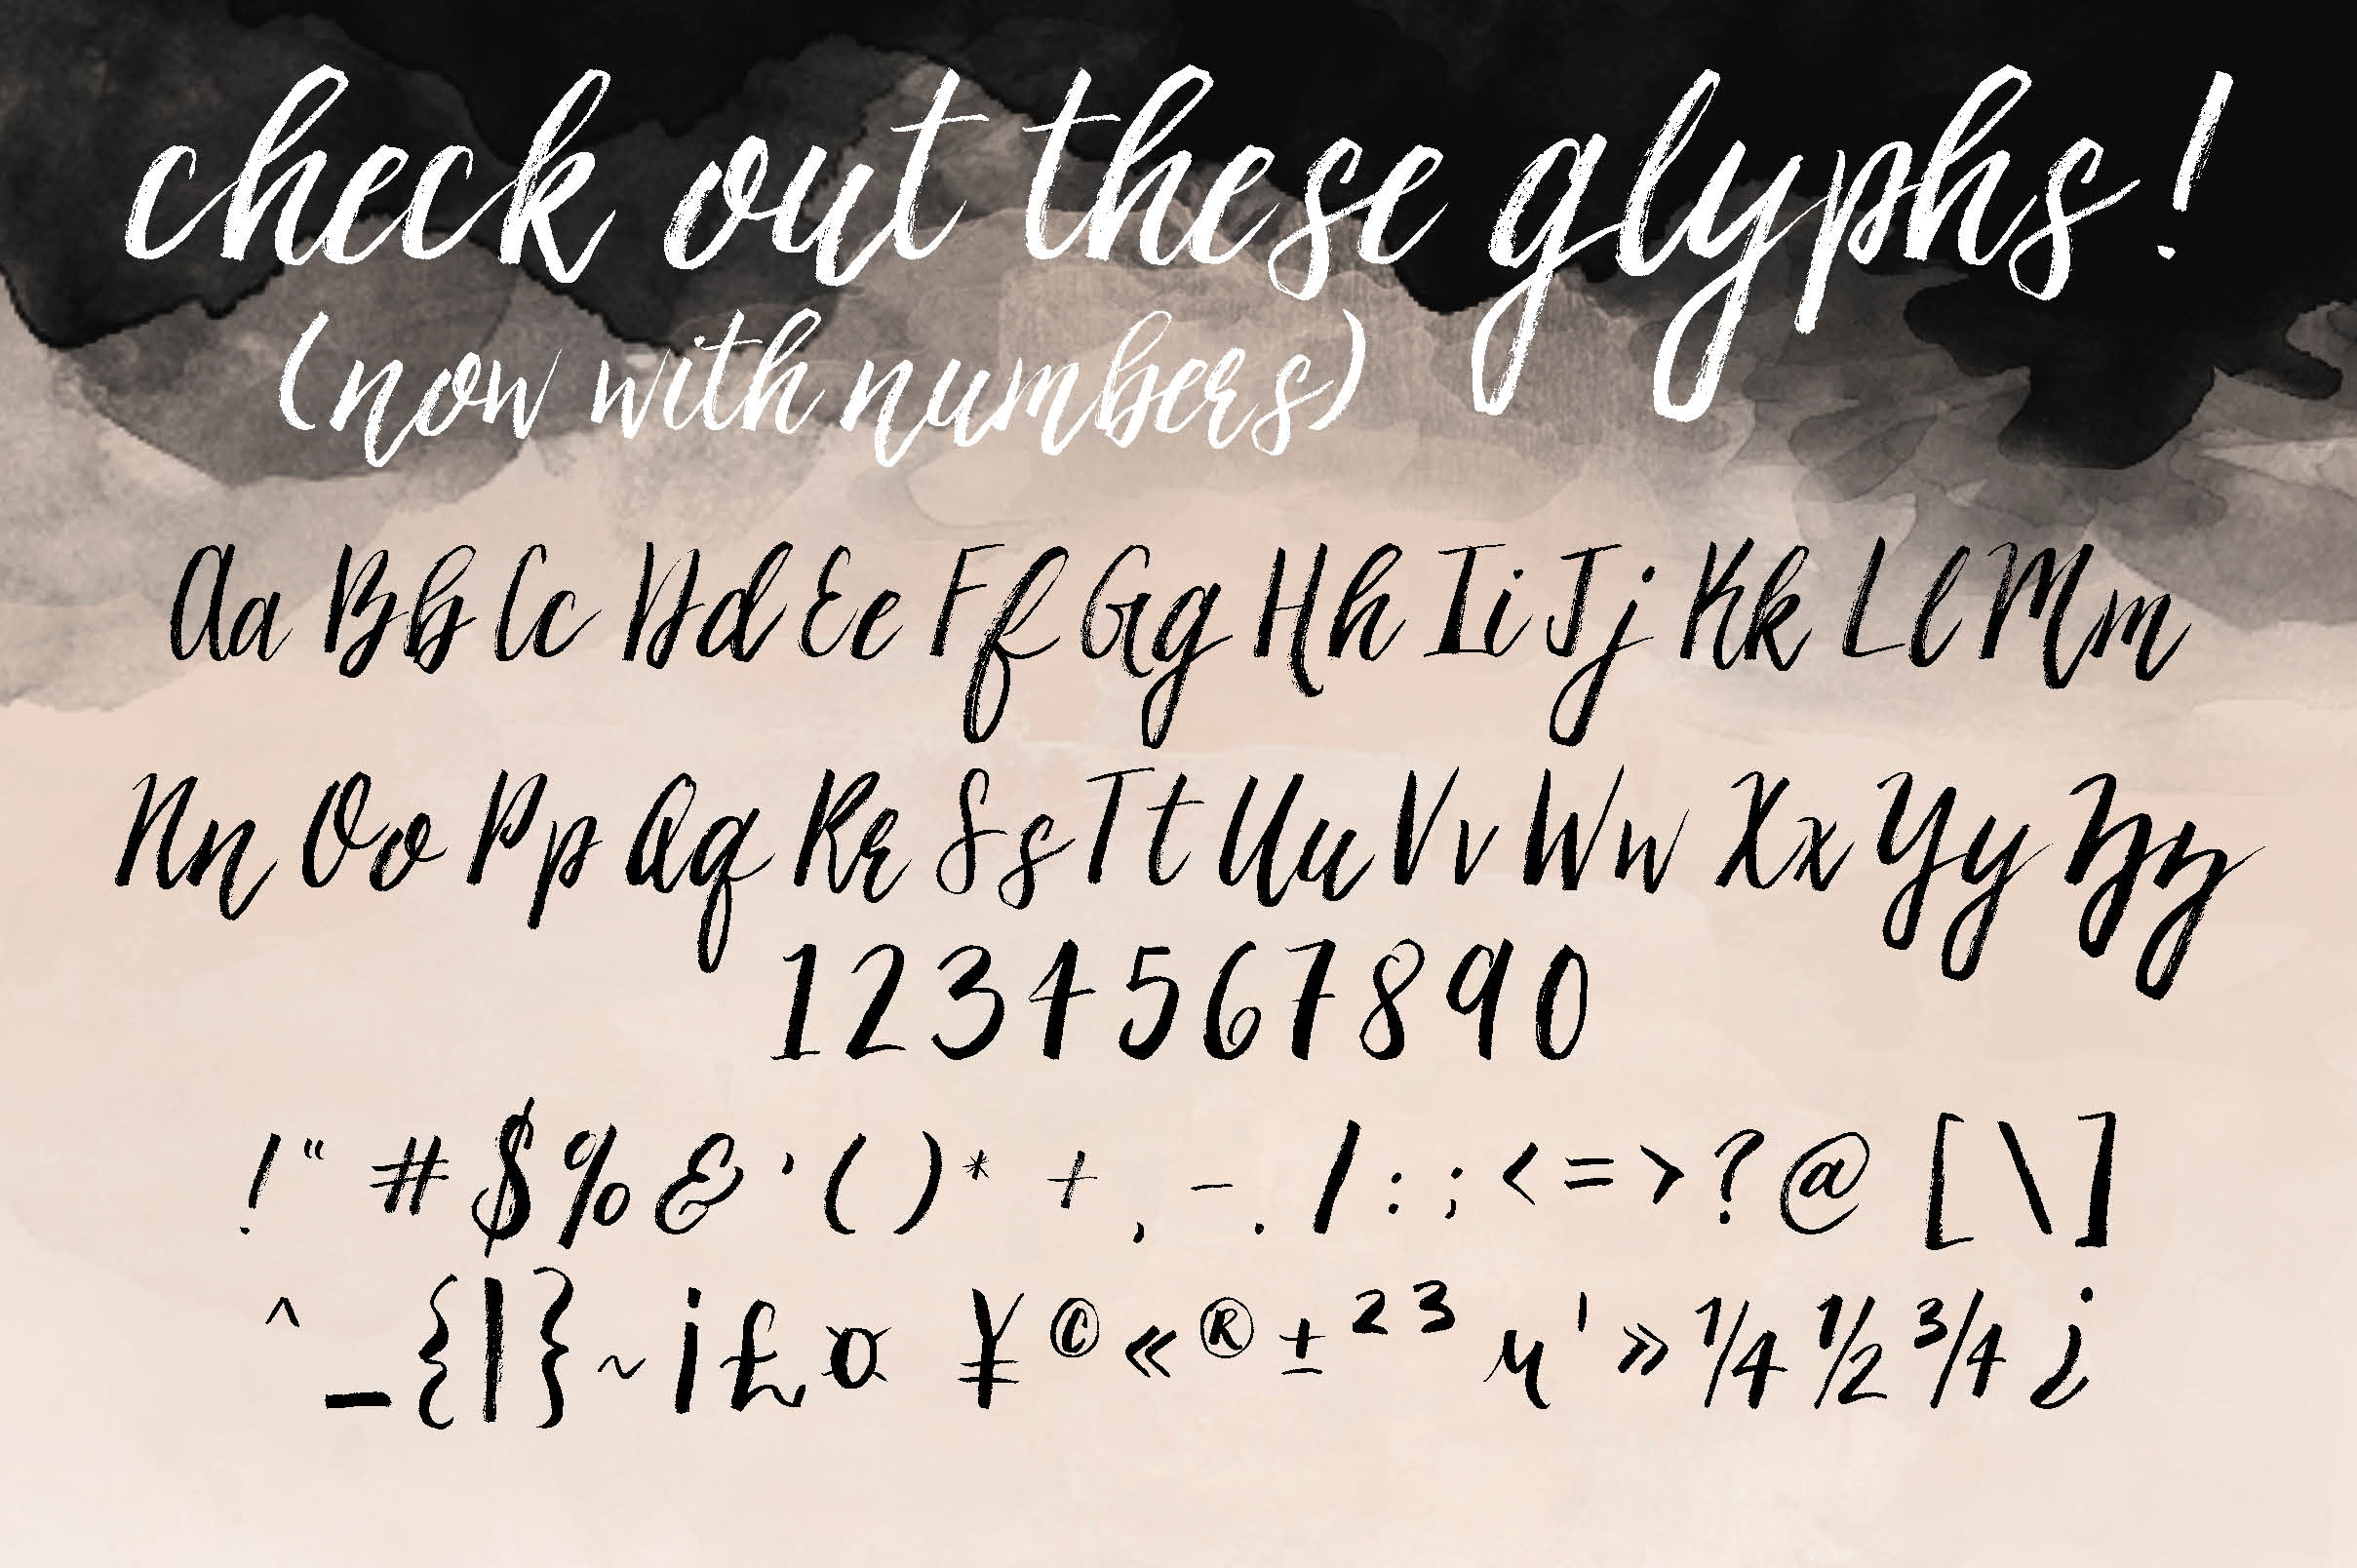 check out these glyphs!
(now with numbers)
Aa Bb Cc Dd Ee Ff Gg Hh Ii Jj Kk Ll Mm
Nn Oo Pp Qq Rr Ss Tt Uu Vv Ww Xx Yy Zz
1234567890
! " # $ % & ' ( ) * + , - . / : ; < = > ? @ [ \ ]
^ _ { | } ~ ¡ £ ¤ ¥ © « ® ± ² ³ µ ' » ¼ ½ ¾ ¿